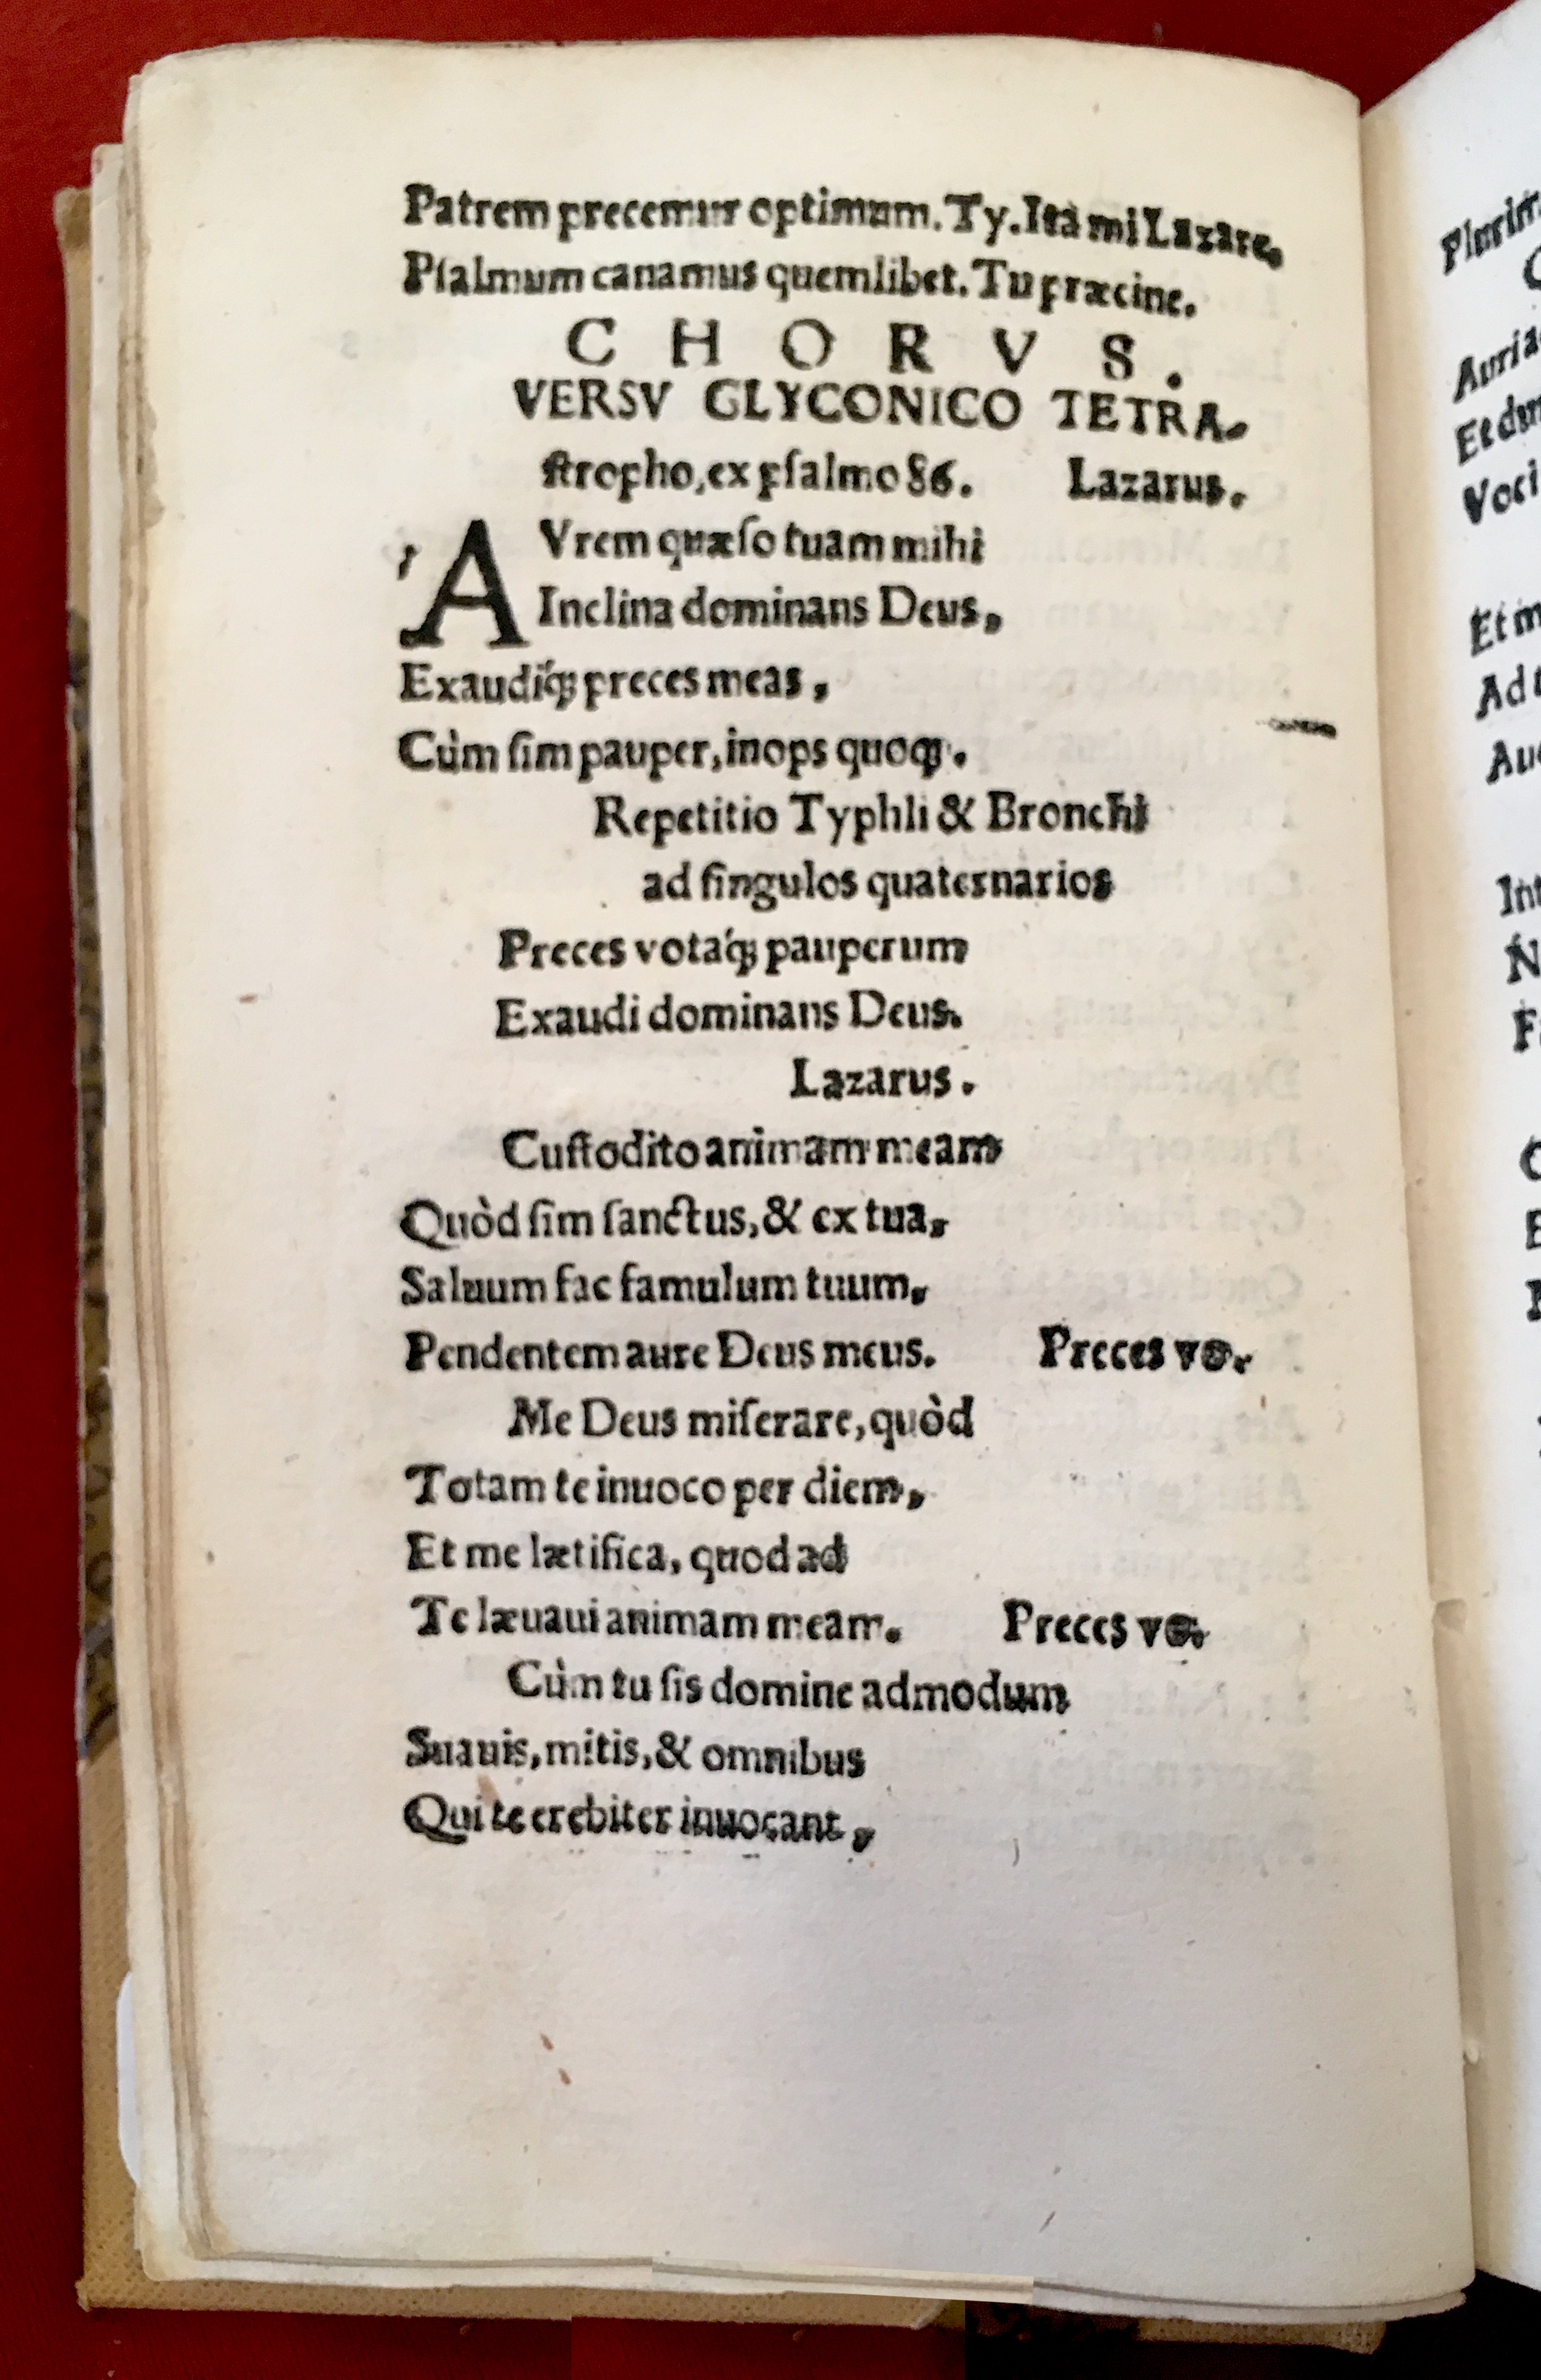 Patrem precemur optimum. Ty. Ita mi Lazare.
Pſalmum canamus quemlibet. Tu præcine.
CHORVS.
VERSV GLYCONICO TETRA-
ſtropho, ex pſalmo 86. Lazarus.
AVrem quæſo tuam mihi
Inclina dominans Deus,
Exaudiq́; preces meas,
Cùm ſim pauper, inops quoq;.
Repetitio Typhli & Bronchi
ad ſingulos quaternarios
Preces votaq́; pauperum
Exaudi dominans Deus.
Lazarus.
Cuſtodito animam meam
Quòd ſim ſanctus, & ex tua,
Saluum fac famulum tuum,
Pendentem aure Deus meus. Preces vo.
Me Deus miſerare, quòd
Totam te inuoco per diem,
Et me lætifica, quod ad
Te læuaui animam meam. Preces vo.
Cùm tu ſis domine admodum
Suauis, mitis, & omnibus
Qui te crebiter inuocant,
Et dum
Voci
Et m
Ad t